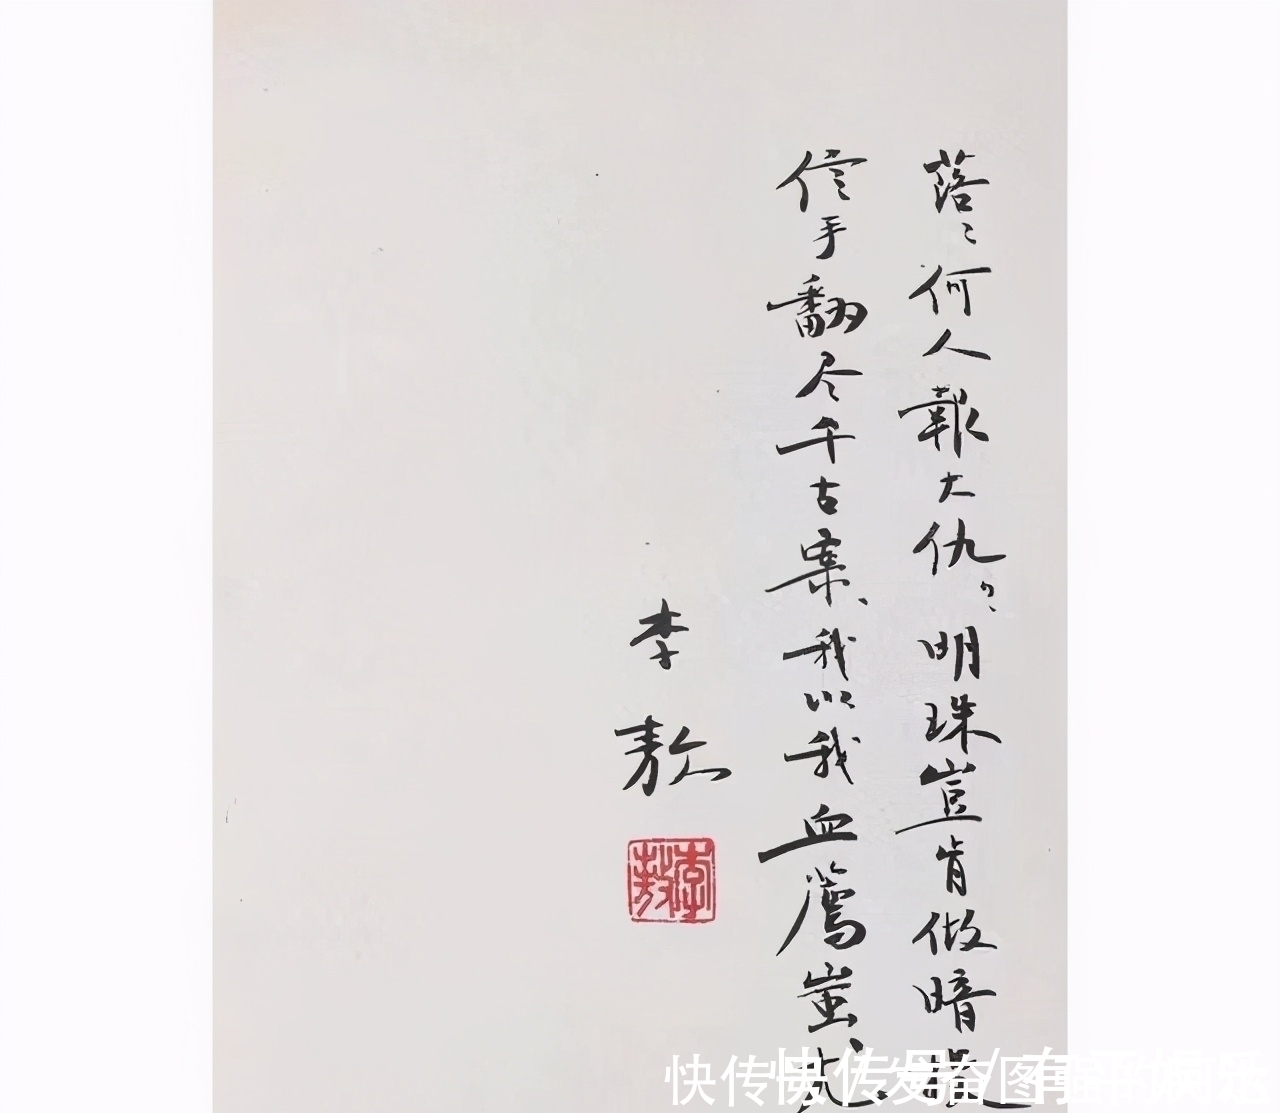 落々何人報大仇？明珠豈肯做暗投
信手翻尽千古案、我以我血薦蚩尤
李敖
李敖
快传号/有